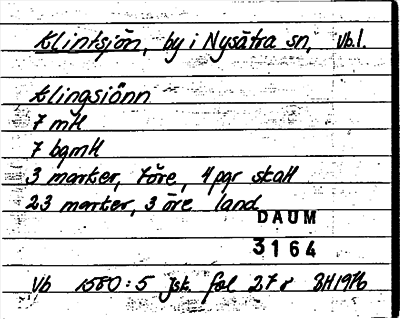 Klintsjön, by i Nysätra sn, Vb.l.
Klingsiönn
7 mtl
7 bgmtl
3 marker, 7 öre, 4 pgr skatt
23 marker, 3 öre land
DAUM
3164
Vb 1580:5 jsk. fol 27 r BH 1976